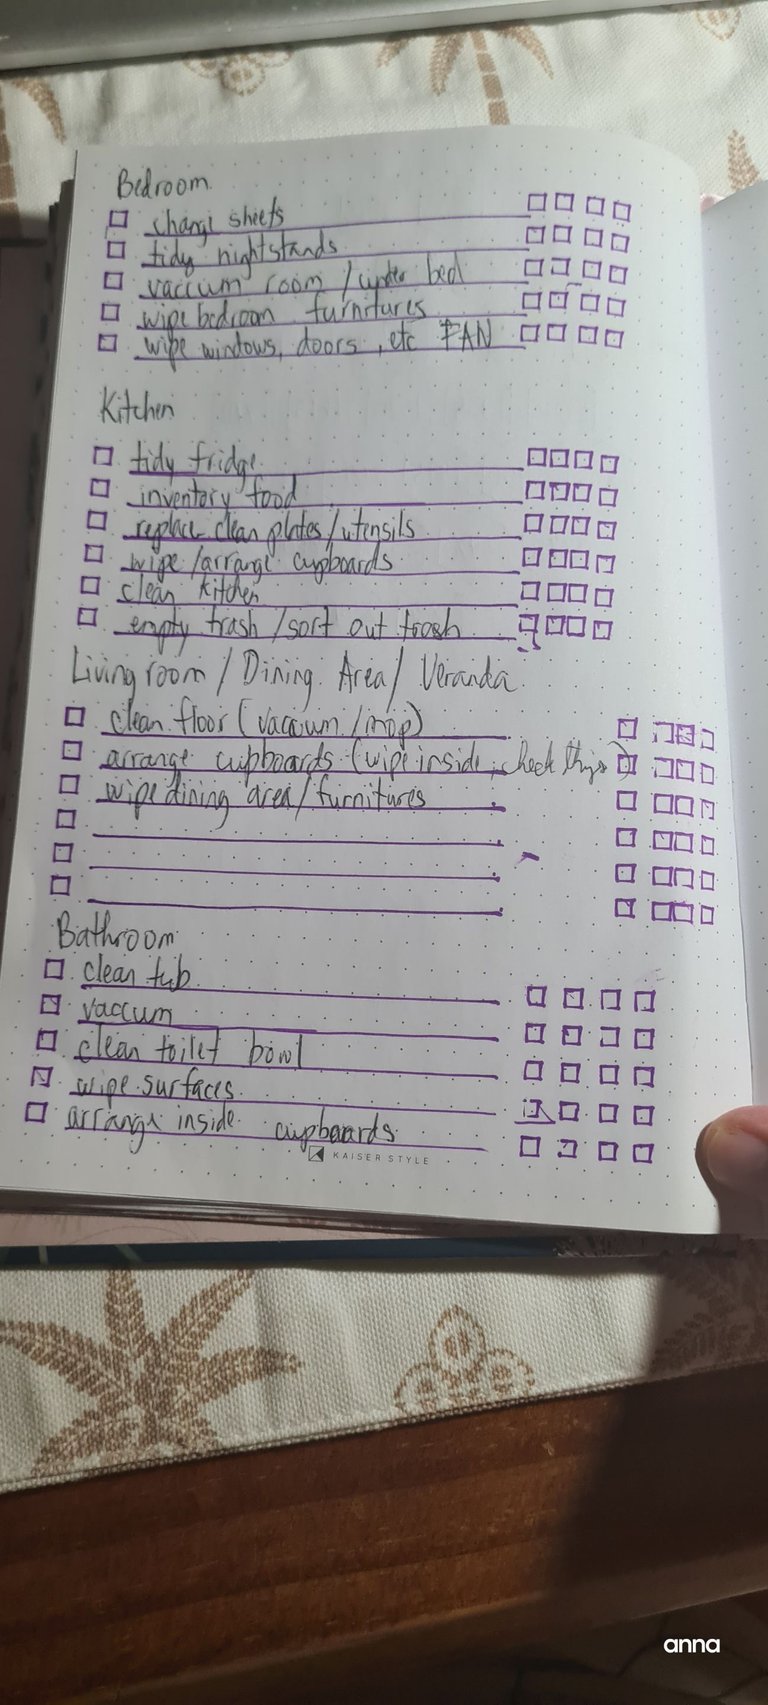 Bedroom
change sheets
tidy nightstands
vaccum room / under bed
wipe bedroom furnitures
wipe windows, doors, etc FAN
Kitchen
tidy fridge
inventory food
replace clean plates/utensils
wipe /arrange cupboards
clean kitchen
empty trash /sort out trash
Living room / Dining Area/ Veranda
clean floor (vaccum /mop)
arrange cupboards (wipe inside, check things)
wipe dining area/furnitures
Bathroom
clean tub
vaccum
clean toilet bowl
wipe surfaces
arrange inside cupboards
KAISER STYLE
anna